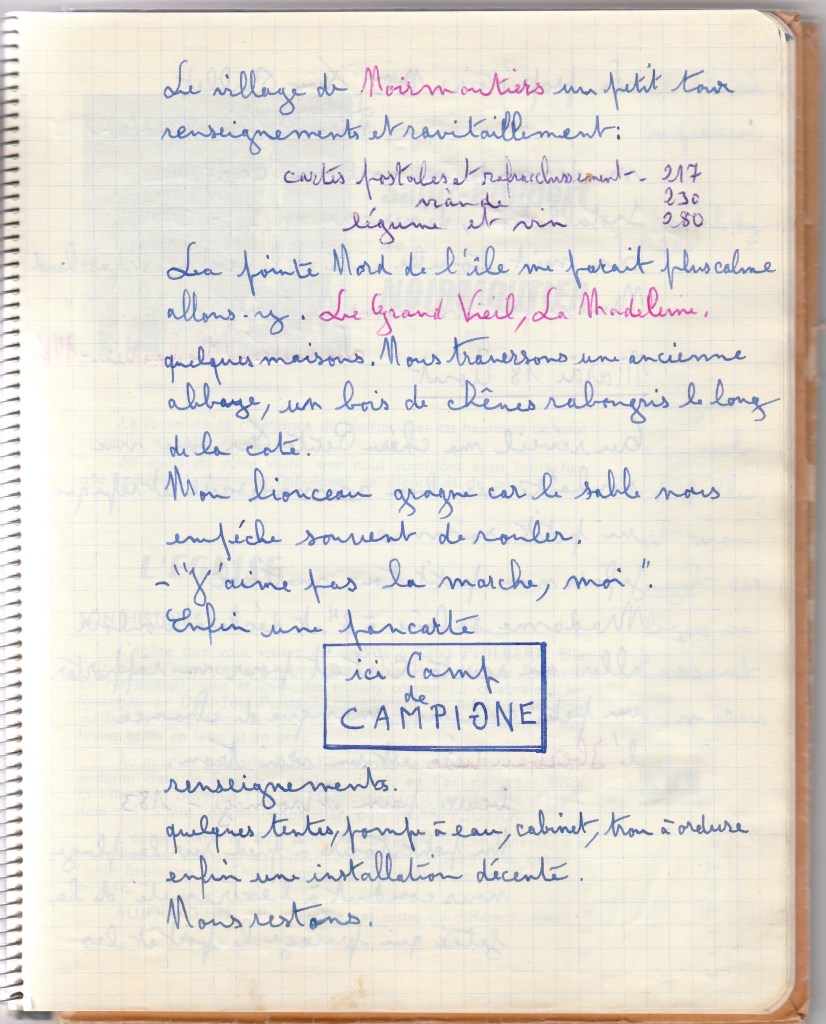 Le village de Noirmoutiers un petit tour
renseignements et ravitaillement:
cartes postales et rafraichissement - 217
viande 230
légume et vin 280
La pointe Nord de l'île me parait plus calme
allons-y. Le Grand Vieil, La Madeleine.
quelques maisons. Nous traversons une ancienne
abbaye, un bois de chênes rabougris le long
de la cote.
Mon lionceau grogne car le sable nous
empéche souvent de rouler.
- "J'aime pas la marche, moi".
Enfin une pancarte
ici Camp
de
CAMPIGNE
renseignements.
quelques tentes, pompe à eau, cabinet, trou à ordure
enfin une installation décente.
Nous restons.